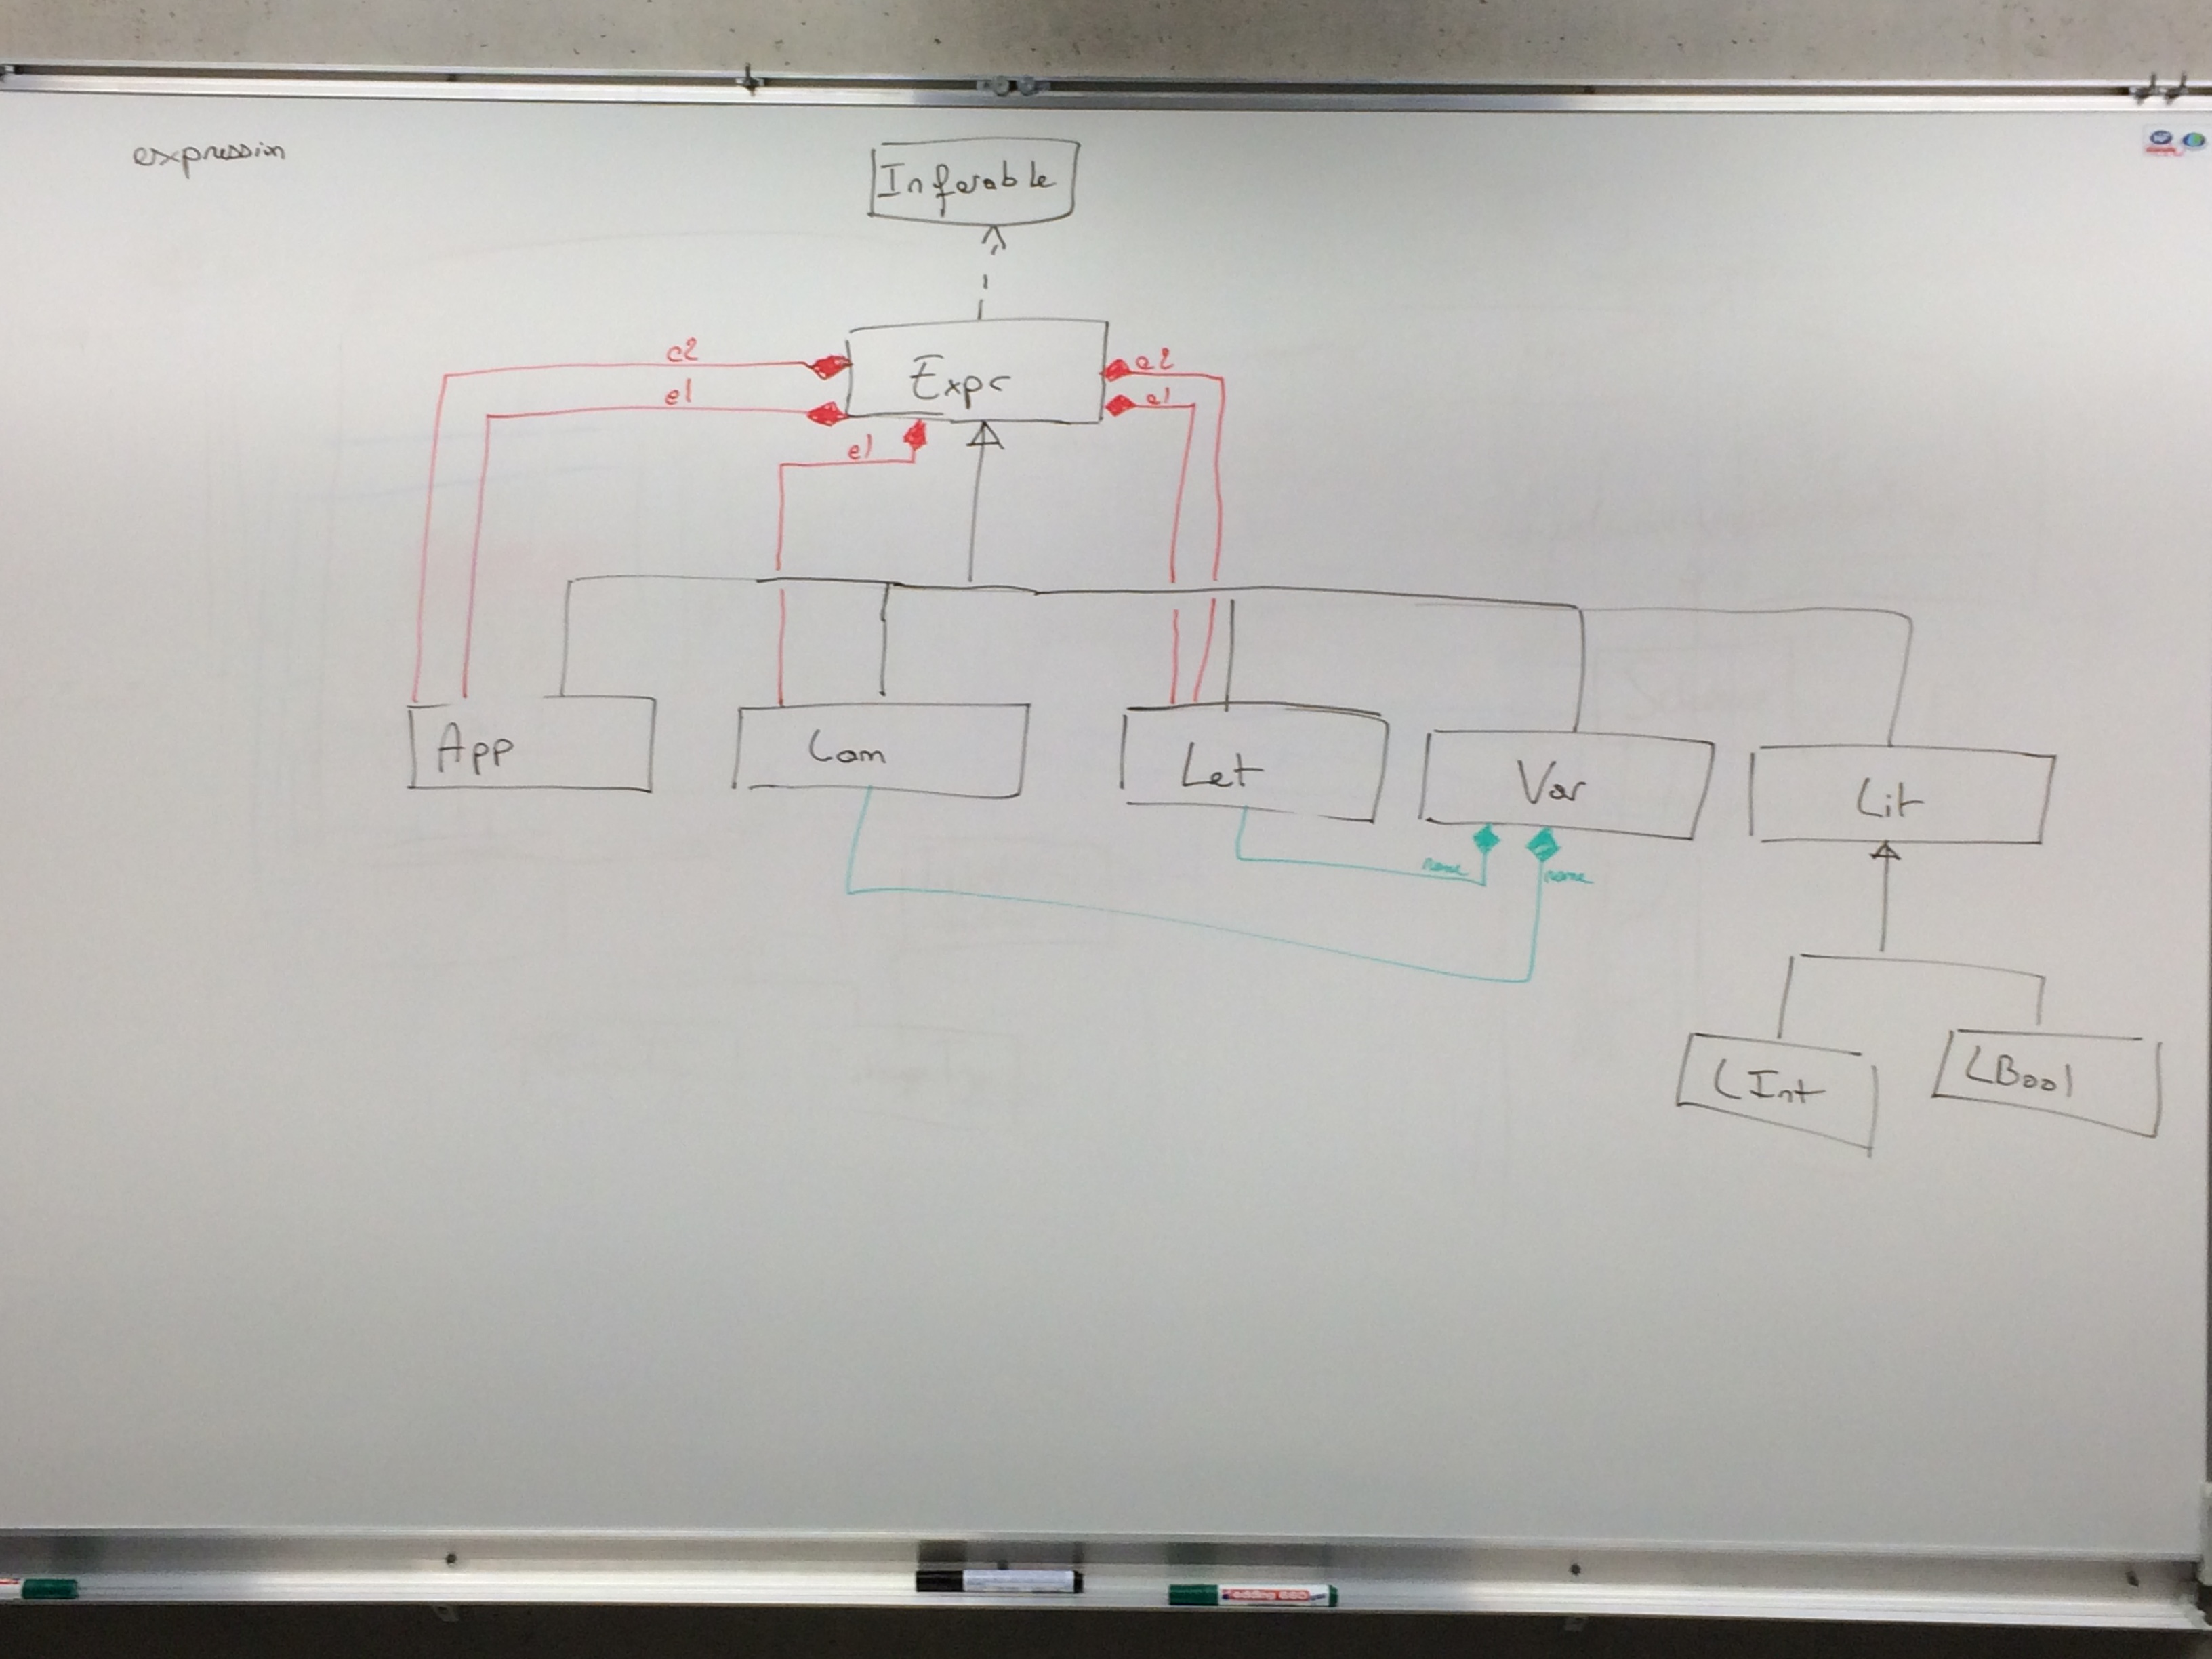 expression
Inferable
Expr
e2
e1
e1
e2
e1
App
Lam
Let
Var
Lit
name
name
LInt
LBool
edding 660